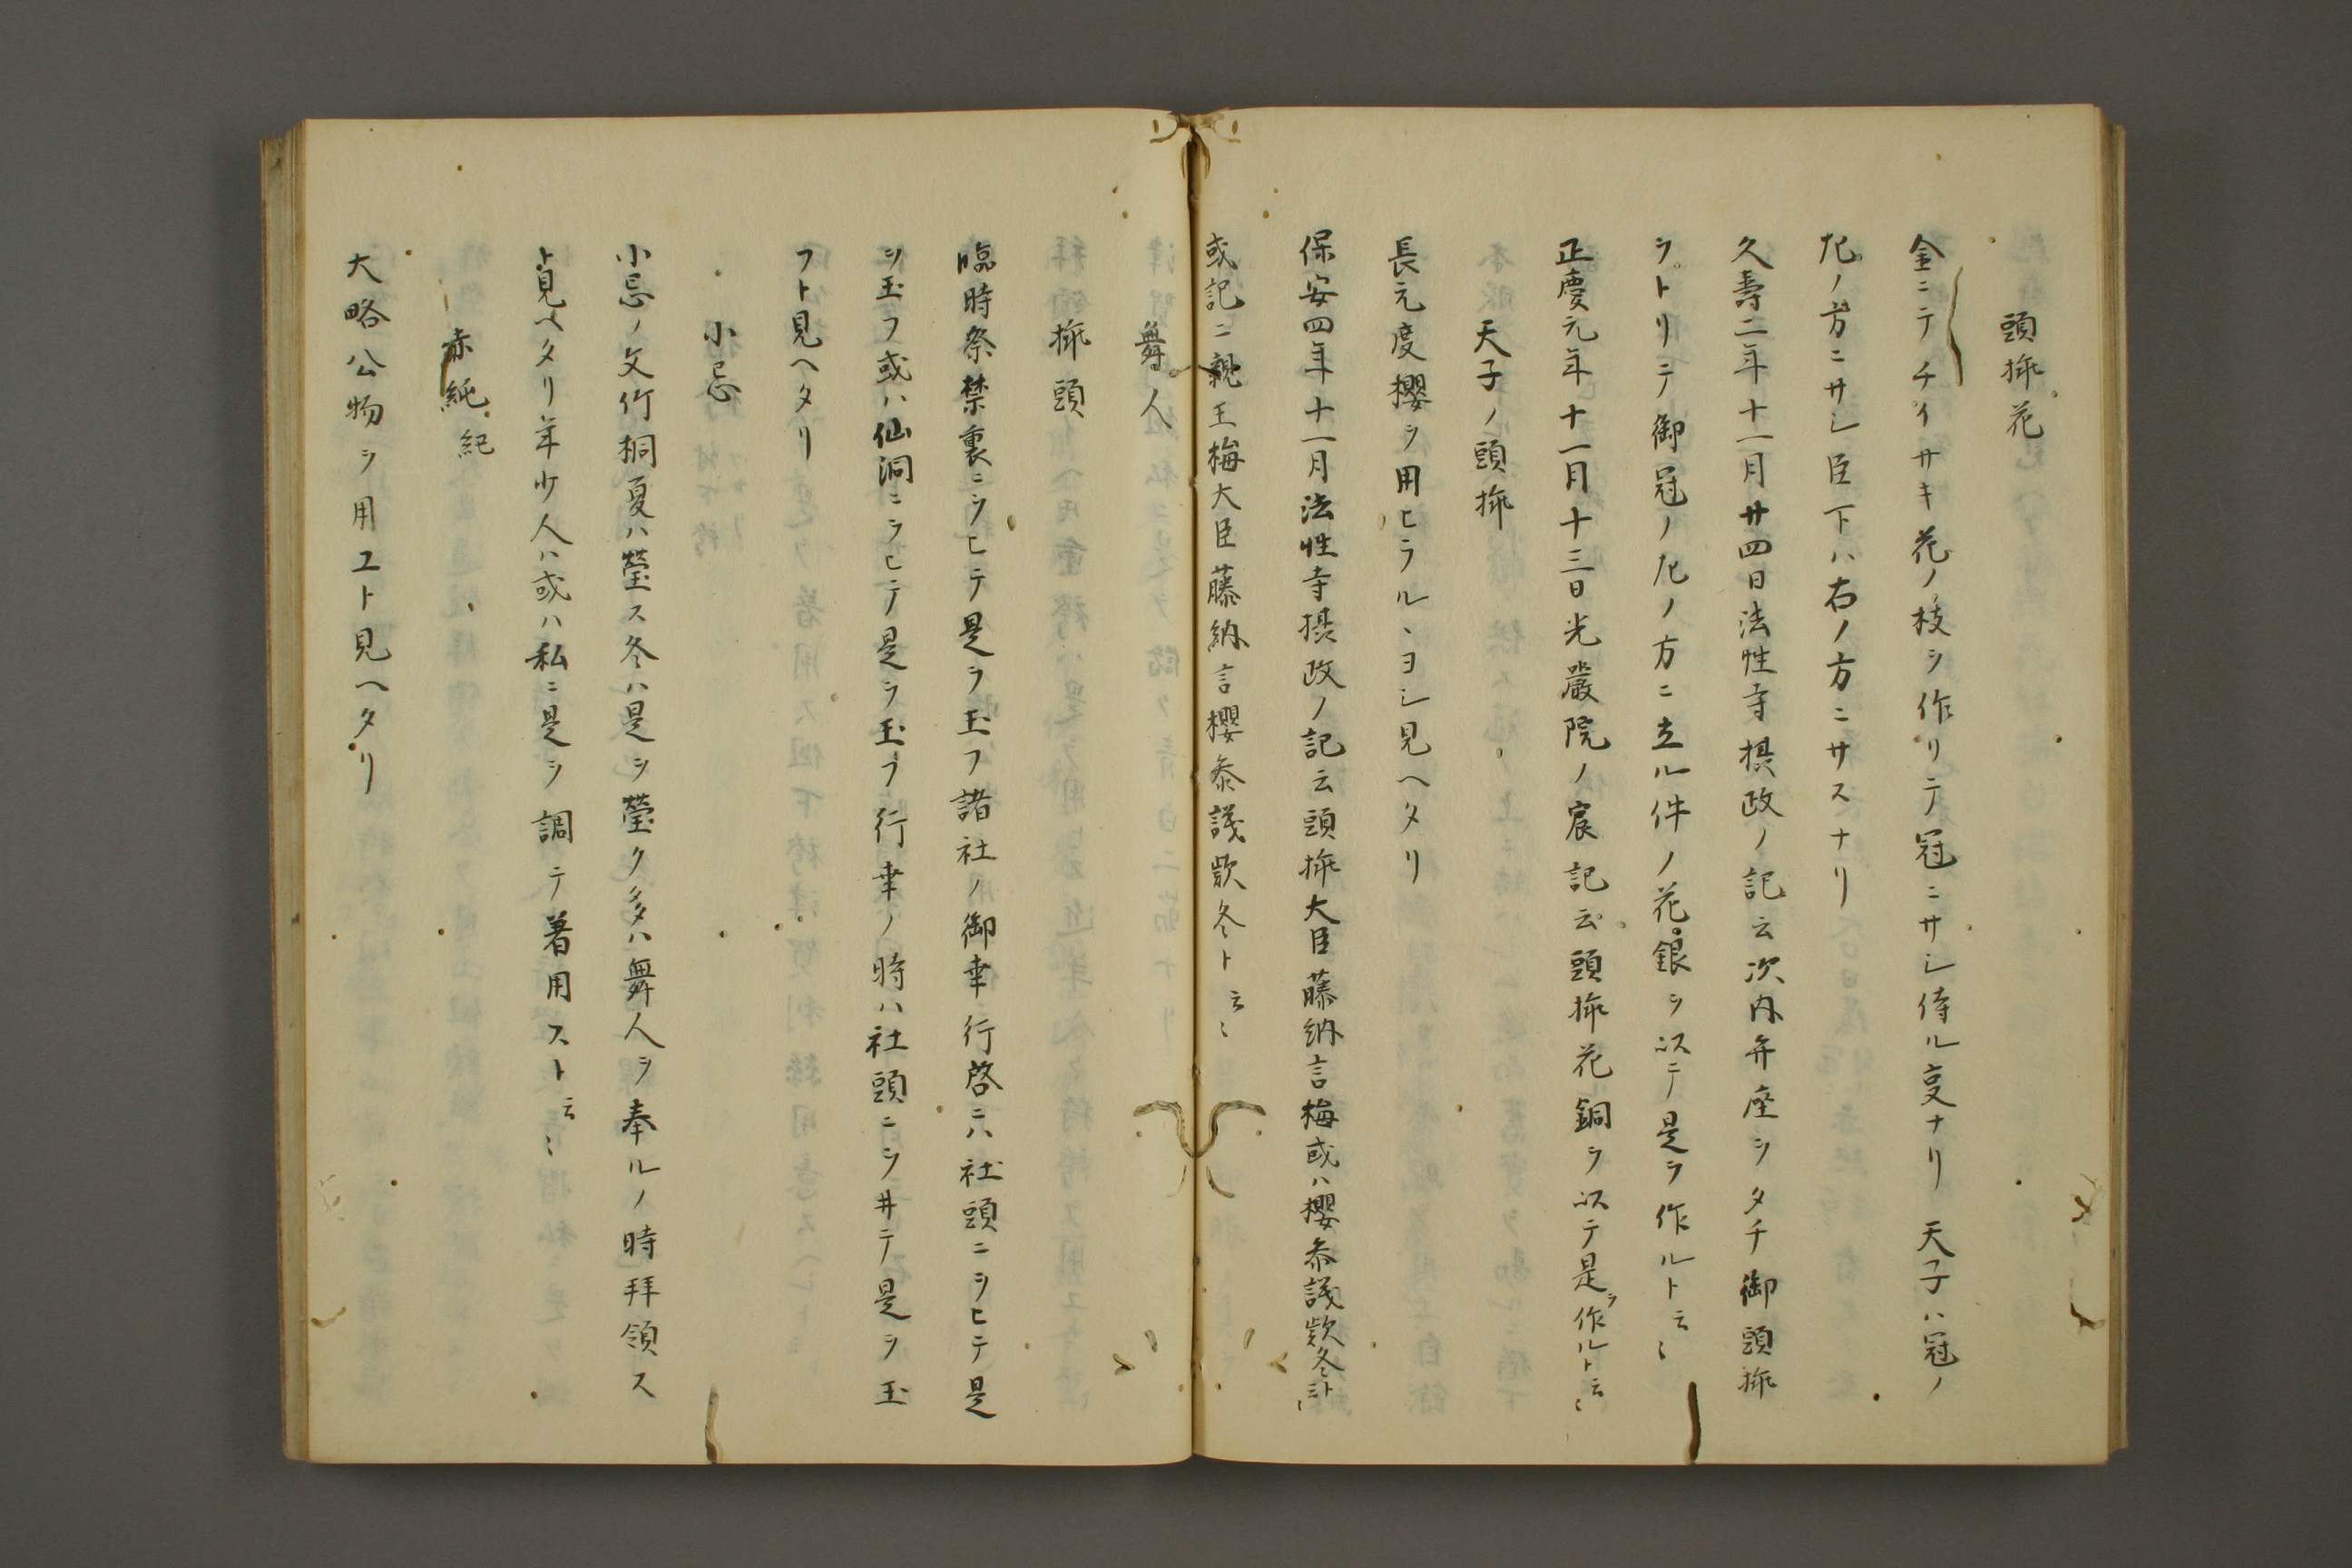 頭挿花
金ニテチイサキ花ノ枝ヲ作リテ冠ニサシ侍ル叓ナリ 天子ハ冠ノ
左ノ方ニサシ臣下ハ右ノ方ニサスナリ
久壽二年十一月廿四日法性寺摂政ノ記云次内弁座ヲタチ御頭挿
ヲトリテ御冠ノ左ノ方ニ立ル件ノ花銀ヲ以テ是ヲ作ルト云〻
正慶元年十一月十三日光嚴院ノ宸記云頭挿花銅ヲ以テ是ヲ作ルト云〻
天子ノ頭挿
長元度櫻ヲ用ヒラルヽヨシ見ヘタリ
保安四年十一月法性寺摂政ノ記云頭挿大臣藤納言梅或ハ櫻叅議欵冬ト云〻
或記ニ親王梅大臣藤納言櫻叅議欵冬ト云〻
舞人
挿頭
臨時祭禁裏ニヲヒテ是ヲ玉フ諸社ノ御幸行啓ニハ社頭ニヲヒテ是
ヲ玉フ或ハ仙洞ニヲヒテ是ヲ玉フ行幸ノ時ハ社頭ニヲ井テ是ヲ玉
フト見ヘタリ
小忌
小忌ノ文竹桐夏ハ瑩ス冬ハ是ヲ瑩ク多ハ舞人ヲ奉ルノ時拜領ス
ト見ヘタリ年少人ハ或ハ私ニ是ヲ調テ著用スト云〻
赤紕紀
大略公物ヲ用ユト見ヘタリ